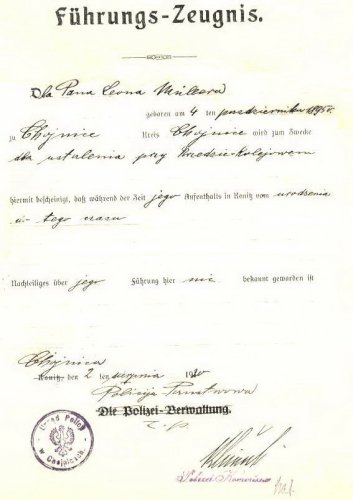 Führungs-Zeugnis.
Dla Pana Leona Müllera
geboren am 4 ten października 1895r.
zu Chojnice Kreis Chojnice wird zum Zwecke
dla ustalenia przy Urzędzie Kolejowem
hiermit bescheinigt, daß während der Zeit jego Aufenthalts in Konitz vom urodzenia
do tego czasu
Nachteiliges über jego Führung hier nic bekannt geworden ist
Chojnice
Konitz, den 2 ten sierpnia 1920
Policja Państwowa
Die Polizei-Verwaltung.
Urząd Policji
w Chojnicach